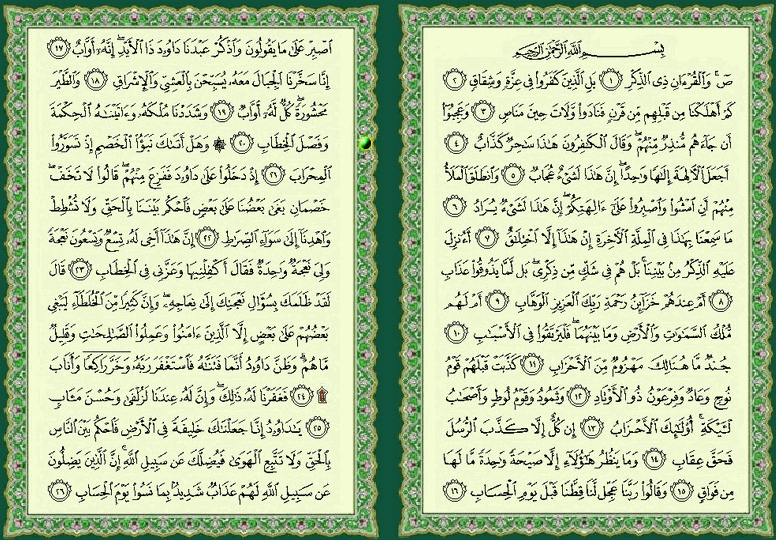 بِسْمِ اللَّهِ الرَّحْمَٰنِ الرَّحِيمِ
صٓ ۚ وَالْقُرْءَانِ ذِى الذِّكْرِ ١ بَلِ الَّذِينَ كَفَرُوا۟ فِى عِزَّةٍ وَشِقَاقٍ ٢
كَمْ أَهْلَكْنَا مِن قَبْلِهِم مِّن قَرْنٍ فَنَادَوا۟ وَّلَاتَ حِينَ مَنَاصٍ ٣ وَعَجِبُوٓا۟
أَن جَآءَهُم مُّنذِرٌ مِّنْهُمْ ۖ وَقَالَ الْكَٰفِرُونَ هَٰذَا سَٰحِرٌ كَذَّابٌ ٤
أَجَعَلَ الْءَالِهَةَ إِلَٰهًا وَٰحِدًا ۖ إِنَّ هَٰذَا لَشَىْءٌ عُجَابٌ ٥ وَانطَلَقَ الْمَلَأُ
مِنْهُمْ أَنِ امْشُوا۟ وَاصْبِرُوا۟ عَلَىٰٓ ءَالِهَتِكُمْ ۖ إِنَّ هَٰذَا لَشَىْءٌ يُرَادُ ٦
مَا سَمِعْنَا بِهَٰذَا فِى الْمِلَّةِ الْءَاخِرَةِ إِنْ هَٰذَآ إِلَّا اخْتِلَٰقٌ ٧ أَءُنزِلَ
عَلَيْهِ الذِّكْرُ مِنۢ بَيْنِنَا ۚ بَلْ هُمْ فِى شَكٍّ مِّن ذِكْرِى ۖ بَل لَّمَّا يَذُوقُوا۟ عَذَابِ
٨ أَمْ عِندَهُمْ خَزَآئِنُ رَحْمَةِ رَبِّكَ الْعَزِيزِ الْوَهَّابِ ٩ أَمْ لَهُم
مُّلْكُ السَّمَٰوَٰتِ وَالْأَرْضِ وَمَا بَيْنَهُمَا ۖ فَلْيَرْتَقُوا۟ فِى الْأَسْبَٰبِ ١٠
جُندٌ مَّا هُنَالِكَ مَهْزُومٌ مِّنَ الْأَحْزَابِ ١١ كَذَّبَتْ قَبْلَهُمْ قَوْمُ
نُوحٍ وَعَادٌ وَفِرْعَوْنُ ذُو الْأَوْتَادِ ١٢ وَثَمُودُ وَقَوْمُ لُوطٍ وَأَصْحَٰبُ
لْـَٔيْكَةِ ۚ أُو۟لَٰٓئِكَ الْأَحْزَابُ ١٣ إِن كُلٌّ إِلَّا كَذَّبَ الرُّسُلَ
فَحَقَّ عِقَابِ ١٤ وَمَا يَنظُرُ هَٰٓؤُلَآءِ إِلَّا صَيْحَةً وَٰحِدَةً مَّا لَهَا
مِن فَوَاقٍ ١٥ وَقَالُوا۟ رَبَّنَا عَجِّل لَّنَا قِطَّنَا قَبْلَ يَوْمِ الْحِسَابِ ١٦
اصْبِرْ عَلَىٰ مَا يَقُولُونَ وَاذْكُرْ عَبْدَنَا دَاوُۥدَ ذَا الْأَيْدِ ۖ إِنَّهُۥٓ أَوَّابٌ ١٧
إِنَّا سَخَّرْنَا الْجِبَالَ مَعَهُۥ يُسَبِّحْنَ بِالْعَشِىِّ وَالْإِشْرَاقِ ١٨ وَالطَّيْرَ
مَحْشُورَةً ۖ كُلٌّ لَّهُۥٓ أَوَّابٌ ١٩ وَشَدَدْنَا مُلْكَهُۥ وَءَاتَيْنَٰهُ الْحِكْمَةَ
وَفَصْلَ الْخِطَابِ ٢٠ ۞ وَهَلْ أَتَىٰكَ نَبَؤُا۟ الْخَصْمِ إِذْ تَسَوَّرُوا۟
الْمِحْرَابَ ٢١ إِذْ دَخَلُوا۟ عَلَىٰ دَاوُۥدَ فَفَزِعَ مِنْهُمْ ۖ قَالُوا۟ لَا تَخَفْ ۖ
خَصْمَانِ بَغَىٰ بَعْضُنَا عَلَىٰ بَعْضٍ فَاحْكُم بَيْنَنَا بِالْحَقِّ وَلَا تُشْطِطْ
وَاهْدِنَآ إِلَىٰ سَوَآءِ الصِّرَٰطِ ٢٢ إِنَّ هَٰذَآ أَخِى لَهُۥ تِسْعٌ وَتِسْعُونَ نَعْجَةً
وَلِىَ نَعْجَةٌ وَٰحِدَةٌ فَقَالَ أَكْفِلْنِيهَا وَعَزَّنِى فِى الْخِطَابِ ٢٣ قَالَ
لَقَدْ ظَلَمَكَ بِسُؤَالِ نَعْجَتِكَ إِلَىٰ نِعَاجِهِۦ ۖ وَإِنَّ كَثِيرًا مِّنَ الْخُلَطَآءِ لَيَبْغِى
بَعْضُهُمْ عَلَىٰ بَعْضٍ إِلَّا الَّذِينَ ءَامَنُوا۟ وَعَمِلُوا۟ الصَّٰلِحَٰتِ وَقَلِيلٌ
مَّا هُمْ ۗ وَظَنَّ دَاوُۥدُ أَنَّمَا فَتَنَّٰهُ فَاسْتَغْفَرَ رَبَّهُۥ وَخَرَّ رَاكِعًا وَأَنَابَ
۩ ٢٤ فَغَفَرْنَا لَهُۥ ذَٰلِكَ ۖ وَإِنَّ لَهُۥ عِندَنَا لَزُلْفَىٰ وَحُسْنَ مَـَٔابٍ
٢٥ يَٰدَاوُۥدُ إِنَّا جَعَلْنَٰكَ خَلِيفَةً فِى الْأَرْضِ فَاحْكُم بَيْنَ النَّاسِ
بِالْحَقِّ وَلَا تَتَّبِعِ الْهَوَىٰ فَيُضِلَّكَ عَن سَبِيلِ اللَّهِ ۚ إِنَّ الَّذِينَ يَضِلُّونَ
عَن سَبِيلِ اللَّهِ لَهُمْ عَذَابٌ شَدِيدٌۢ بِمَا نَسُوا۟ يَوْمَ الْحِسَابِ ٢٦